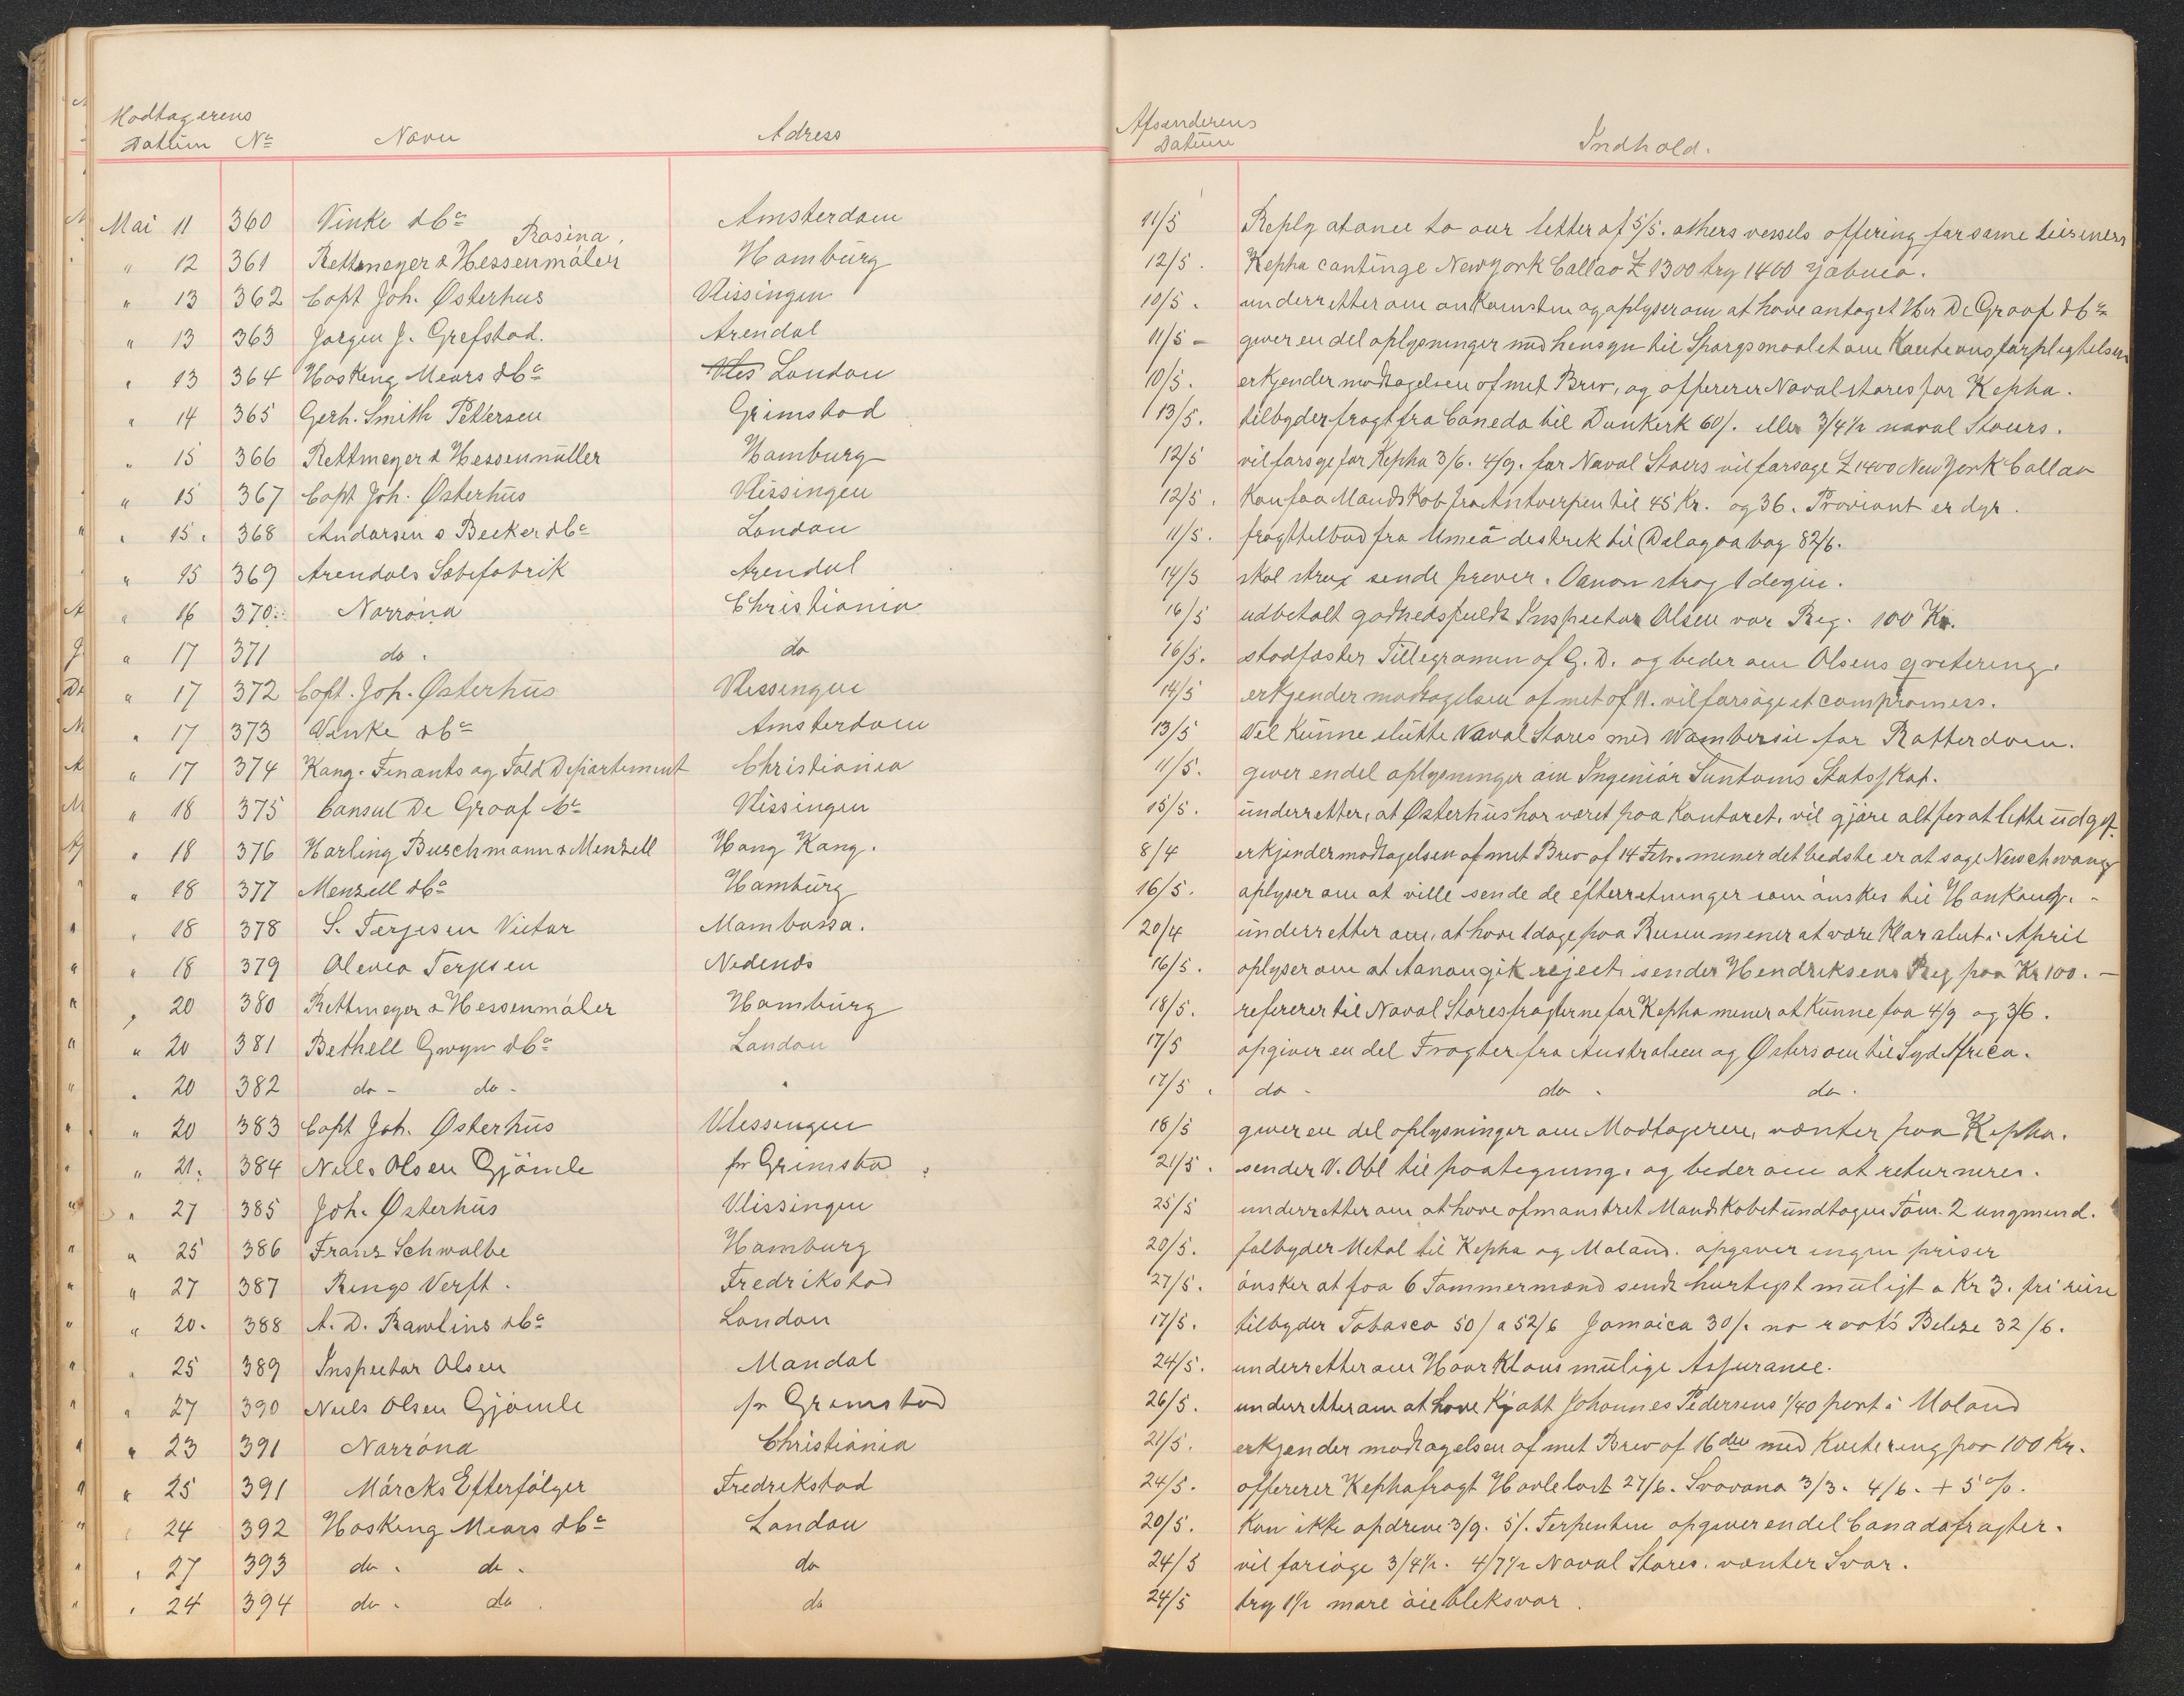 Modtagerens
Datum No Navn Adress
Afsenderens
Datum Indhold.
Mai 11 360 Vinke & Co Amsterdam 11/5 Reply at once to our letter of 5/5. others vessels offering for same
Rosina,
" 12 361 Rettmeyer & Hessenmüler Hamburg 12/5. Kepha New York Callao £ 1300 try 1400
" 13 362 Capt Joh. Østerhus Vlissingen 10/5. underretter om ankomsten og oplyser om at have antaget Hr De Graaf & Co
" 13 363 Jørgen J. Grefstad. Arendal 11/5 - giver en del oplysninger med hensyn til Spørgsmaalet om
" 13 364 Hosking Mears & Co Vlis London 10/5. erkjender modtagelsen af mit Brev, og offererer Naval stores for Kepha.
" 14 365 Gerh. Smith Pettersen Grimstad 13/5. tilbyder fragt fra Caneda til Dunkerk 60/. eller 3/4½ naval Stoers.
" 15 366 Rettmeyer & Hessenmüller Hamburg 12/5 vil forsøge for Kepha 3/6. 4/9. for Naval Stoers vil forsøge £ 1400 New York Callao
" 15 367 Capt Joh. Østerhus Vlissingen 12/5. Kan faa Mandskab fra Antverpen til 45 Kr. og 36. Proviant er dyr.
" 15. 368 Andorsen & Becker & Co London 11/5. fragttilbud fra Umeå destrek til Dalagoa bay 82/6.
" 15 369 Arendals Sæbefabrik Arendal 14/5 skal strax sende prøver.
" 16 370. Norróna Christiania 16/5 udbetalt godhedsfuldt Inspector Olsen vor Reg. 100 Kr.
" 17 371 do. do 16/5. stadfæster Tillegramm af G. D. og beder om Olsens qvitering.
" 17 372 Capt. Joh. Østerhus Vlissingen 14/5 erkjender modtagelsen af mit af 11. vil forsøge et compromiss.
" 17 373 Vinke & Co Amsterdam 13/5 Vil kunne slutte Naval Stores med Wambersie for Rotterdam.
" 17 374 Kong. Finants og Told Departement Christiania 11/5. giver endel oplysninger om Ingeniør Suntums Statsskat.
" 18 375 Consul De Graaf Co Vlissingen 15/5. underretter, at Østerhus har været paa Kontoret, vil gjøre alt for at lette udgif.
" 18 376 Harling Buschmann & Menzell Hong Kong. 8/4 erkjender modtagelsen af mit Brev af 14 Febr. mener det bedste er at søge Newchwang
" 18 377 Menzell & Co Hamburg 16/5. oplyser om at ville sende de efterretninger som ønskes til Honkong. -
" 18 378 S. Terjesen Victor Mambassa. 20/4 underretter om, at have 1 dage paa Reisen mener at være klar slut i April
" 18 379 Olevia Terjesen Nedenæs 16/5. oplyser om at sender Hendriksens Reg paa Kr 100. -
" 20 380 Rettmeyer & Hessenmüler Hamburg 18/5. refererer til Naval Stores fragterne for Kepha mener at kunne faa 4/9 og 3/6.
" 20 381 Bethell Gwyn & Co London 17/5 opgiver en del Fragter fra Australien og Østersøen til Syd Africa.
" 20 382 do - do - " 17/5. do - do. do.
" 20 383 Capt Joh. Østerhus Vlissingen 18/5 giver en del oplysninger om Modtageren, venter paa Kepha.
" 21. 384 Niels Olsen Gjømle pr Grimstad. 21/5. sender V. Obl til paategning, og beder om at returneres.
" 27 385 Joh. Østerhus Vlissingen 25/5 underretter om at have afmønstret Mandskabet undtagen Tøm. 2 ungmend.
" 25 386 Franz Schwalbe Hamburg 20/5. falbyder Metal til Kepha og Moland. opgiver ingen priser
" 27 387 Rings Verft. Fredrikstad 27/5. ønsker at faa 6 Tømmermænd sendt hurtigst muligt a Kr 3. fri reise
" 20. 388 A. D. Rawlins & Co London 17/5. tilbyder Tobasco 50/ a 52/6 Jamaica 30/. no roots Belize 32/6.
" 25 389 Inspector Olsen Mandal 24/5. underretter om Haar Klous mulige Assurance.
" 27 390 Niels Olsen Gjømle pr Grimstad 26/5. underretter om at have Kjøbt Johannes Pedersens 1/40 part i Moland
" 23 391 Norróna Christiania 21/5. erkjender modtagelsen af mit Brev af 16 den med Kvitering paa 100 Kr.
" 25 391 Mørcks Efterfølger Fredrekstad 24/5. offererer Kepha fragt 27/6. Savana 3/3. 4/6. + 5 %.
" 24 392 Hosking Mears & Co London 20/5. Kan ikke opdrive 3/9. 5/. Terpentin opgiver endel Canadafragter.
" 27 393 do. do. do 24/5 vil forsøge 3/4½. 4/7½ Naval Stores. venter Svar.
" 24 394 do. do. do 24/5 try 1½ more øiebliksvar.